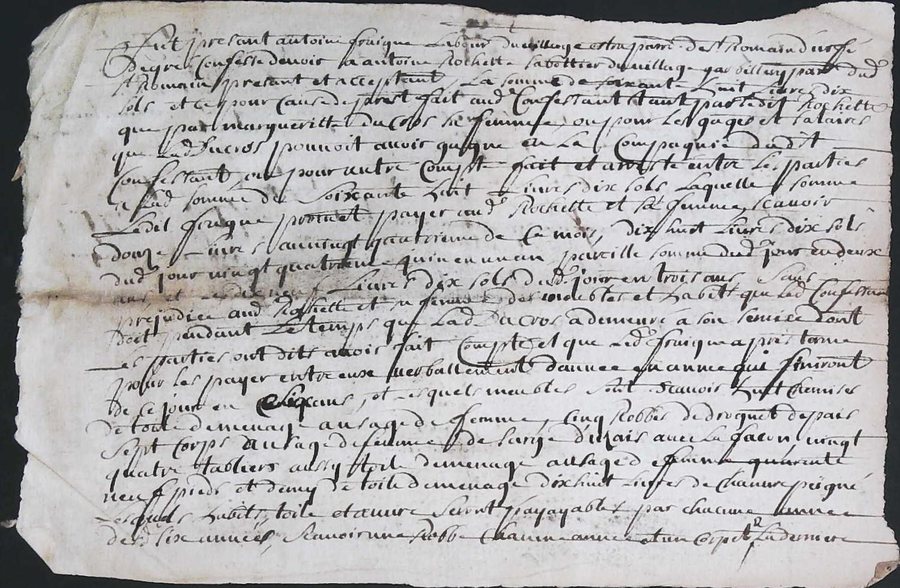 Fut presant antoine fruique Laboureur du village estraparre de St Romain d'urfé
Degré Confesse devoir a antoine Rochette sabottier du village par dud
St Romain presant et acceptant La somme de soixante huit Livres dix
sols et ce pour Cause de prest fait aud Confessant tant par ledit Rochette
que par margueritte du Cros sa femme ou pour les gages et salaires
que Lad Ducros pouvoit avoir en La Compagnie dudit
Confessant ou pour autre Compte fait et arresté entre les parties
a lad somme de Soixante huit Livres dix sols Laquelle somme
Ledit fruique promet payer aud Rochette et sa femme scavoir
Douze Livres au vingt quatrieme de Ce mois, dix huit Livres dix sols
dud jour vingt quatrieme en un an pareille somme dud jour en deux
ans et Livres dix sols dud jour en trois ans sans
prejudice aud Rochette et sa femme des meubles et habits que Lad Confessant
doit pendant Le temps que Lad Ducros a demeuré a son service dont
Les parties ont dits avoir fait Compte et que Led fruique a pris terme
pour les payer entre eux verballement d'année en année qui finiront
de Ce jour en Six ans, et Lesquels meubles sont scavoir huit Chemises
de toile de menage a usage de femme Cinq Robbes de droguet de pais
Sept Corps a usage de femme de sarge du pais avec La facon vingt
quatre tabliers aussy toile de menage a usage de femme quarente
neuf pieds et demy de toile de menage dix huit Livres de Chanvre peigné
Lesquels habits, toile et œuvre seront payables par chacune année
desd six années, Scavoir une Robbe Chacune année et un Corps La derniere